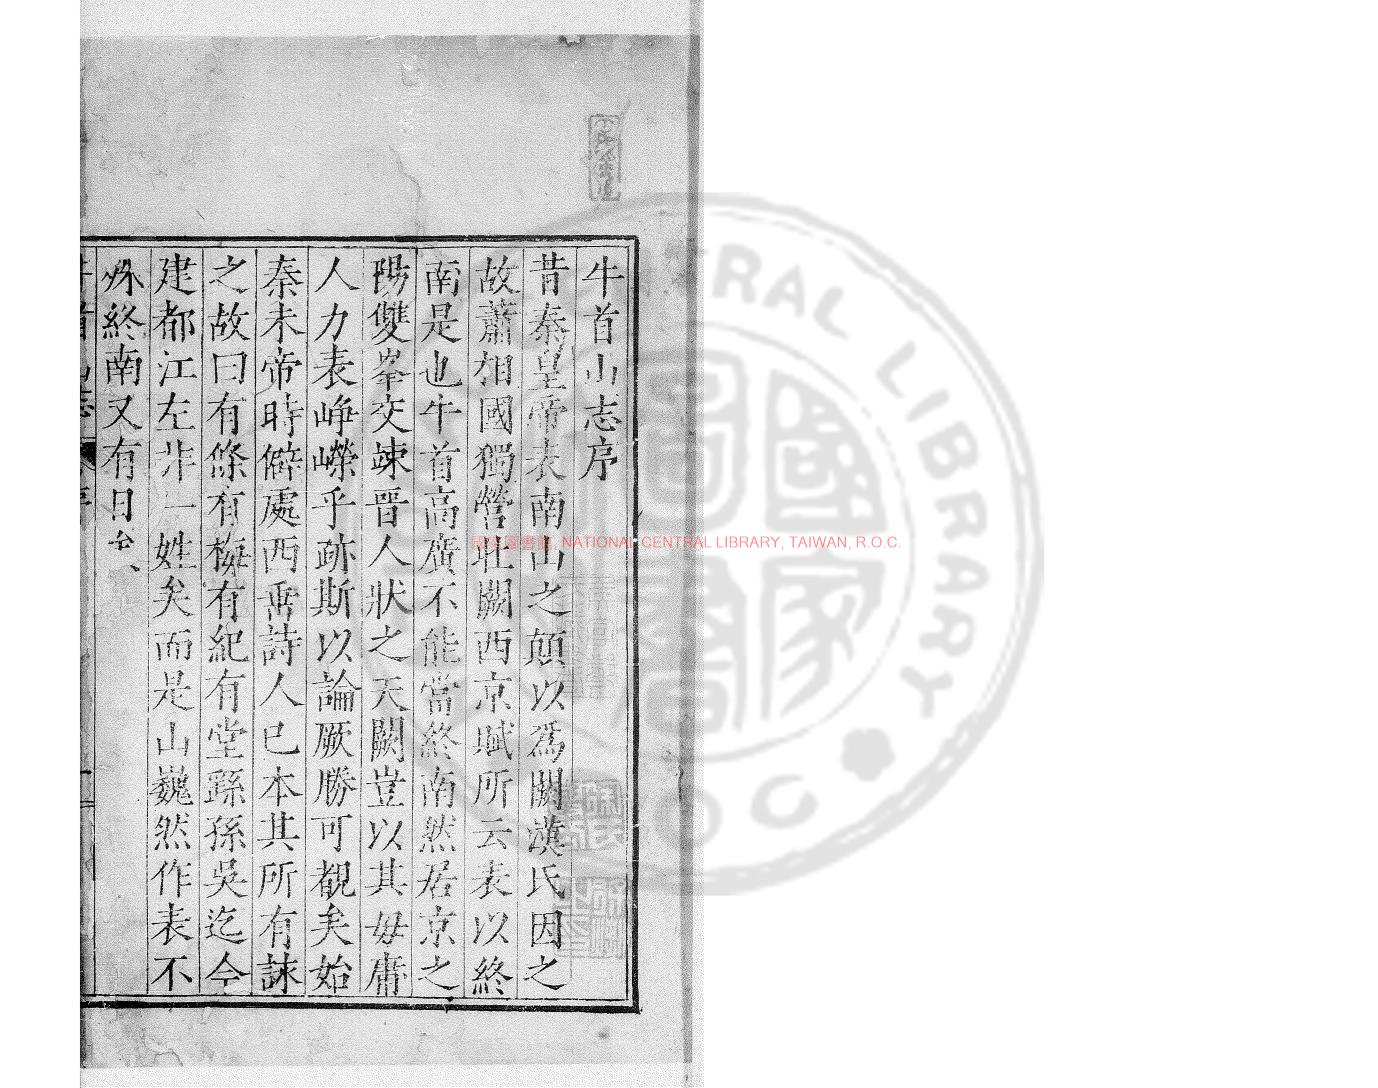 牛首山志序
昔秦皇帝表南山之顛以爲闕漢氏因之
故蕭相國獨營壯闕西京賦所云表以終
南是也牛首高廣不能當終南然居京之
陽雙峯交竦晉人狀之天闕豈以其毋庸
人力表崢嶸乎跡斯以論厥勝可覩矣始
秦未帝時僻處西垂詩人已本其所有誄
之故曰有條有梅有紀有堂繇孫吳迄今
建都江左非一姓矣而是山巍然作表不
終南又有日
國家圖書館, NATIONAL CENTRAL LIBRARY, TAIWAN, R.O.C.